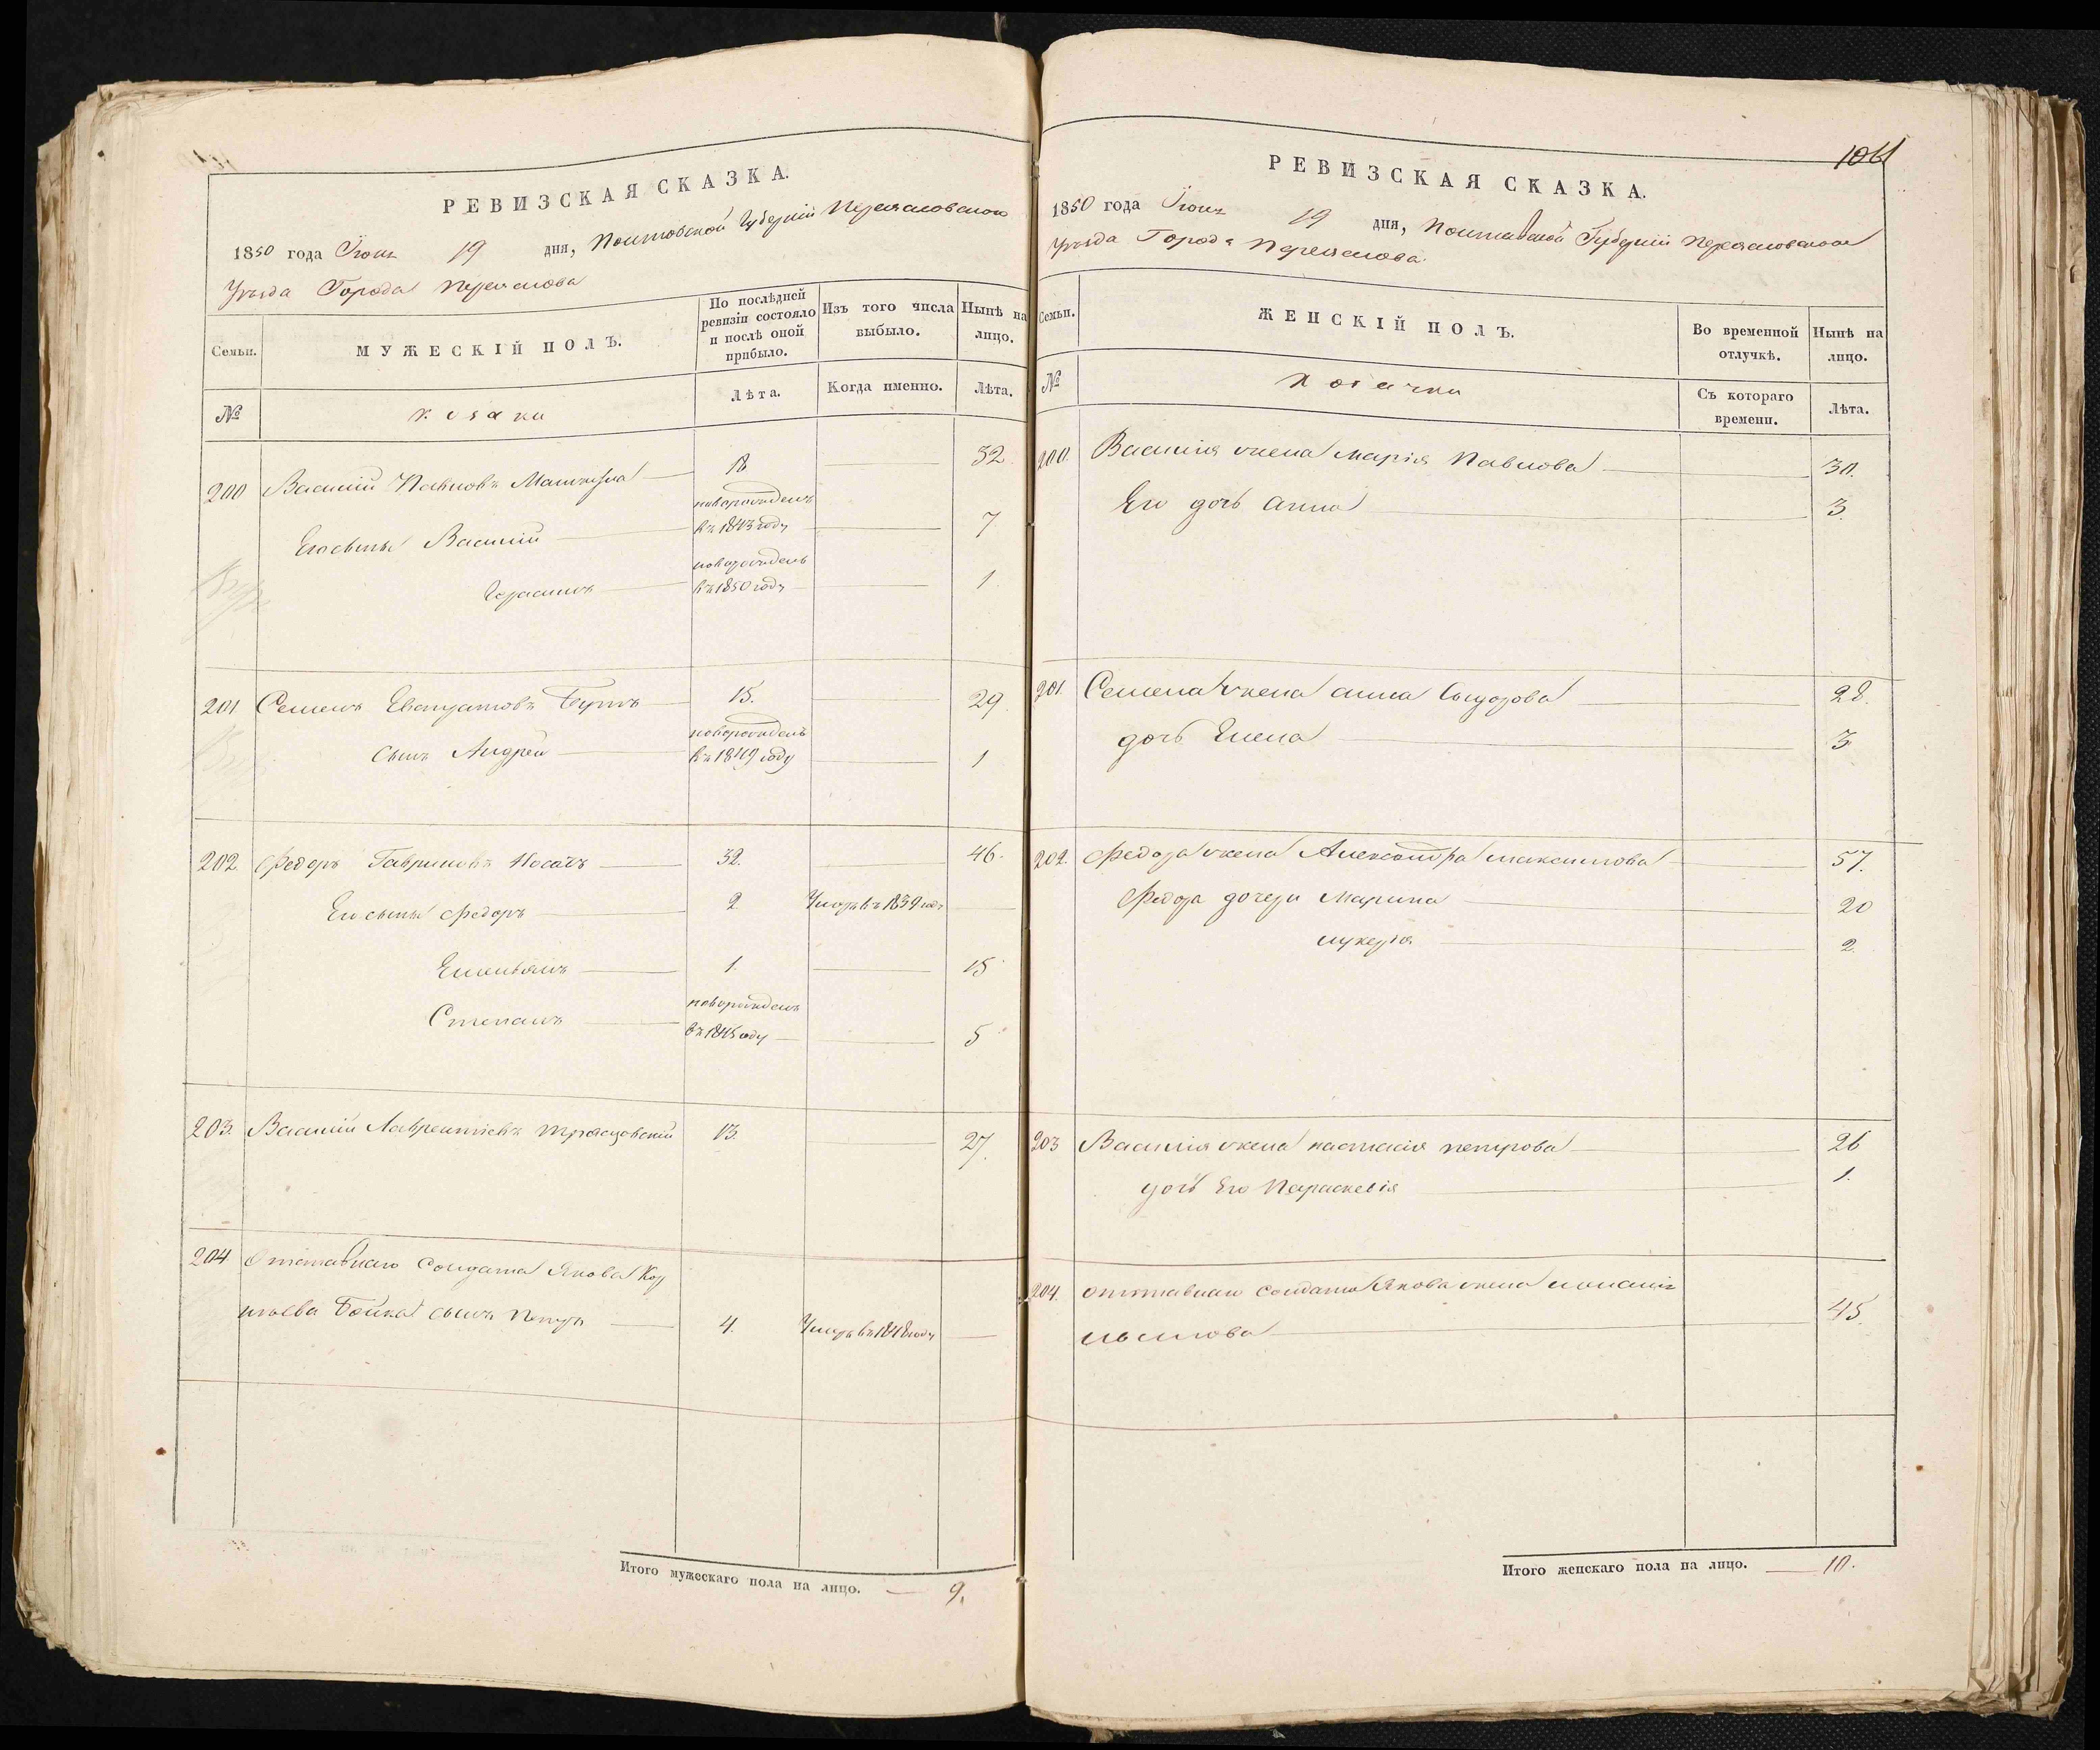 РЕВИЗСКАЯ СКАЗКА.
1850 года Іюня 19 дня, Полтавской Губерніи Переяславского
Уѣзда Города Переяслова
Семьи.
МУЖЕСКІЙ ПОЛЪ.
По послѣдней
ревизіи состояло
и послѣ оной
прибыло.
Изъ того числа
выбыло.
Нынѣ на
лицо.
№
козаки
Лѣта.
Когда именно.
Лѣта.
200 Василій Павловъ 18 32.
новорожденъ
Его сыны Василій въ 1843 году 7
новорожденъ
Герасимъ въ 1850 году 1
201 Семенъ Бутъ 15. 29.
новорожденъ
сынъ Андрей въ 1849 году 1
202. Федоръ Гавриловъ Носачъ 32. 46.
Его сыны Федоръ 2. Умеръ въ 1839 году
Емельянъ 1. 15
новорожденъ
Степанъ въ 1845 году 5
203. Василій Лаврентіевъ 13. 27.
204 Отставнаго Солдата Якова
Бойка сынъ Петръ 4. Умеръ въ 1848 году
Итого мужескаго пола на лицо. 9.
1061
РЕВИЗСКАЯ СКАЗКА.
1850 года Іюня 19 дня, Полтавской Губерніи Переяславского
Уѣзда Города Переяслова.
Семьи.
ЖЕНСКІЙ ПОЛЪ.
Во временной
отлучкѣ.
Нынѣ на
лицо.
№
козачки
Съ котораго
времени.
Лѣта.
200. Василія жена Марія Павлова 30.
Его дочь Анна 3.
201. Семена жена Анна Сыдорова 28.
дочь Елена 3
202. Федора жена Александра Максимова 57.
Федора дочери Марина 20
Лукерія 2.
203 Василія жена Настасія Петрова 26
дочь Его Параскевія 1.
204. отставнаго солдата Якова жена
45.
Итого женскаго пола на лицо. 10.